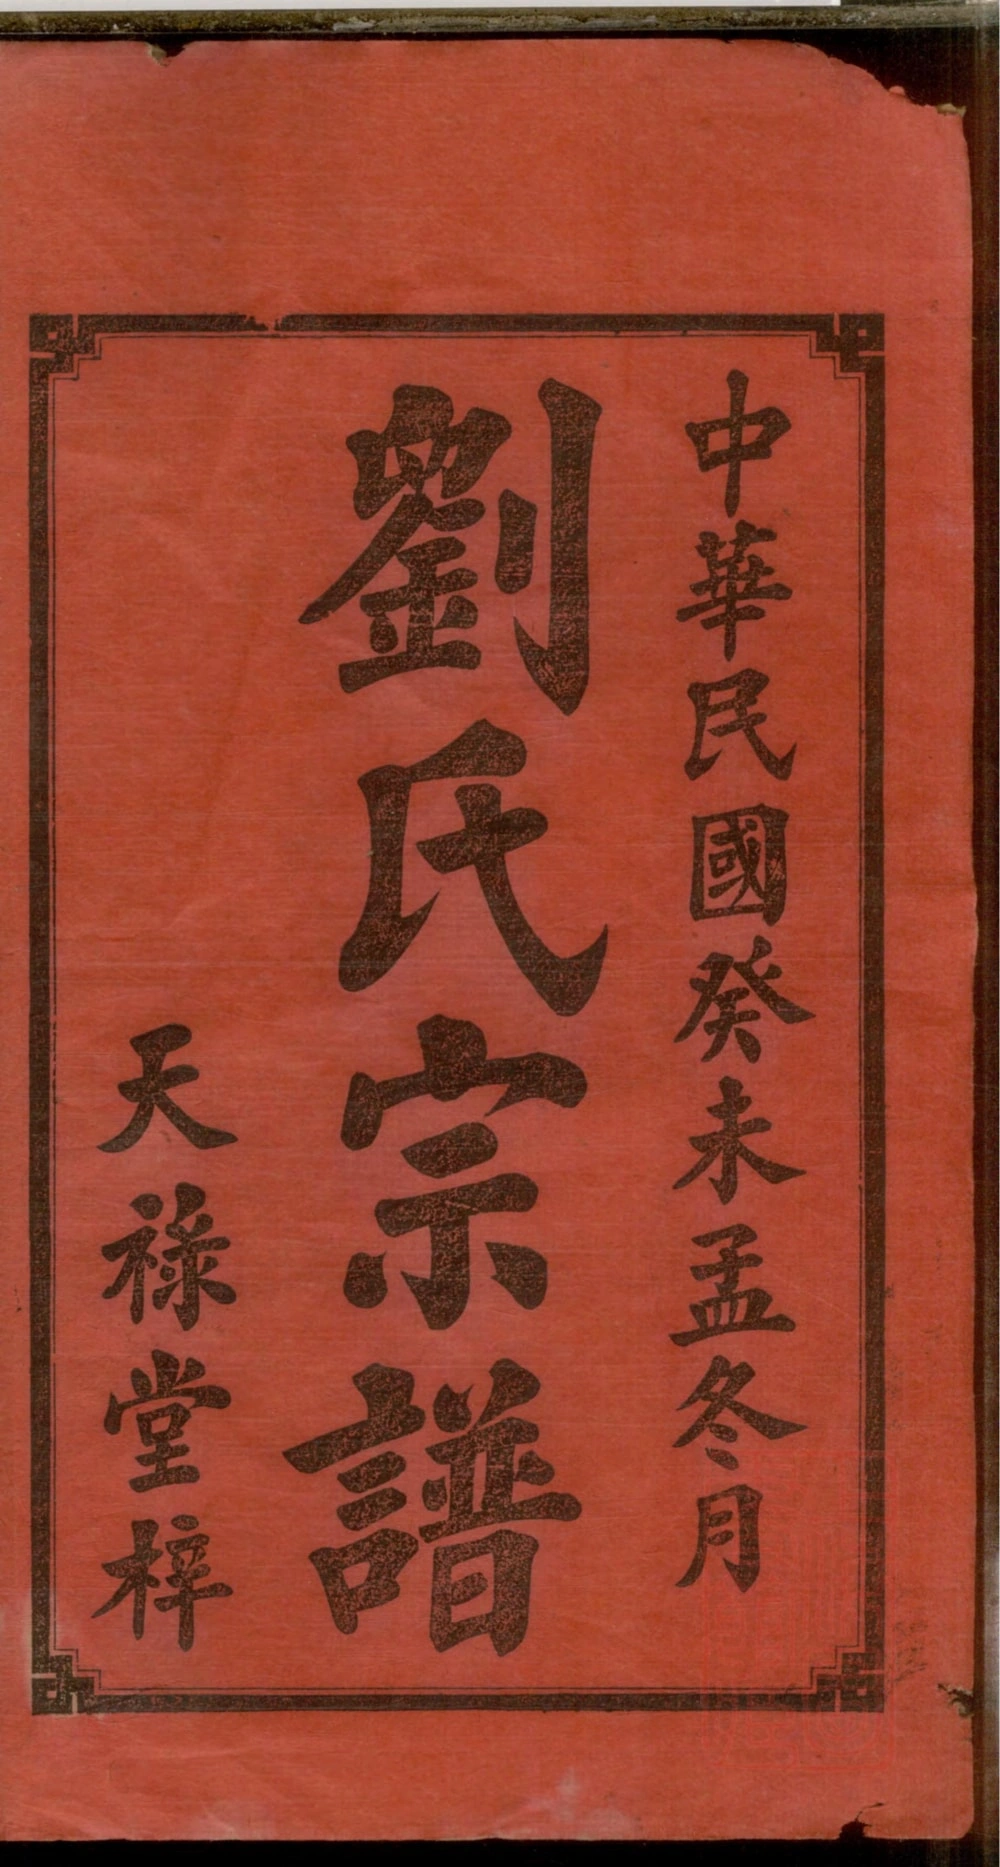 中華民國癸未孟冬月
劉氏宗譜
天祿堂梓